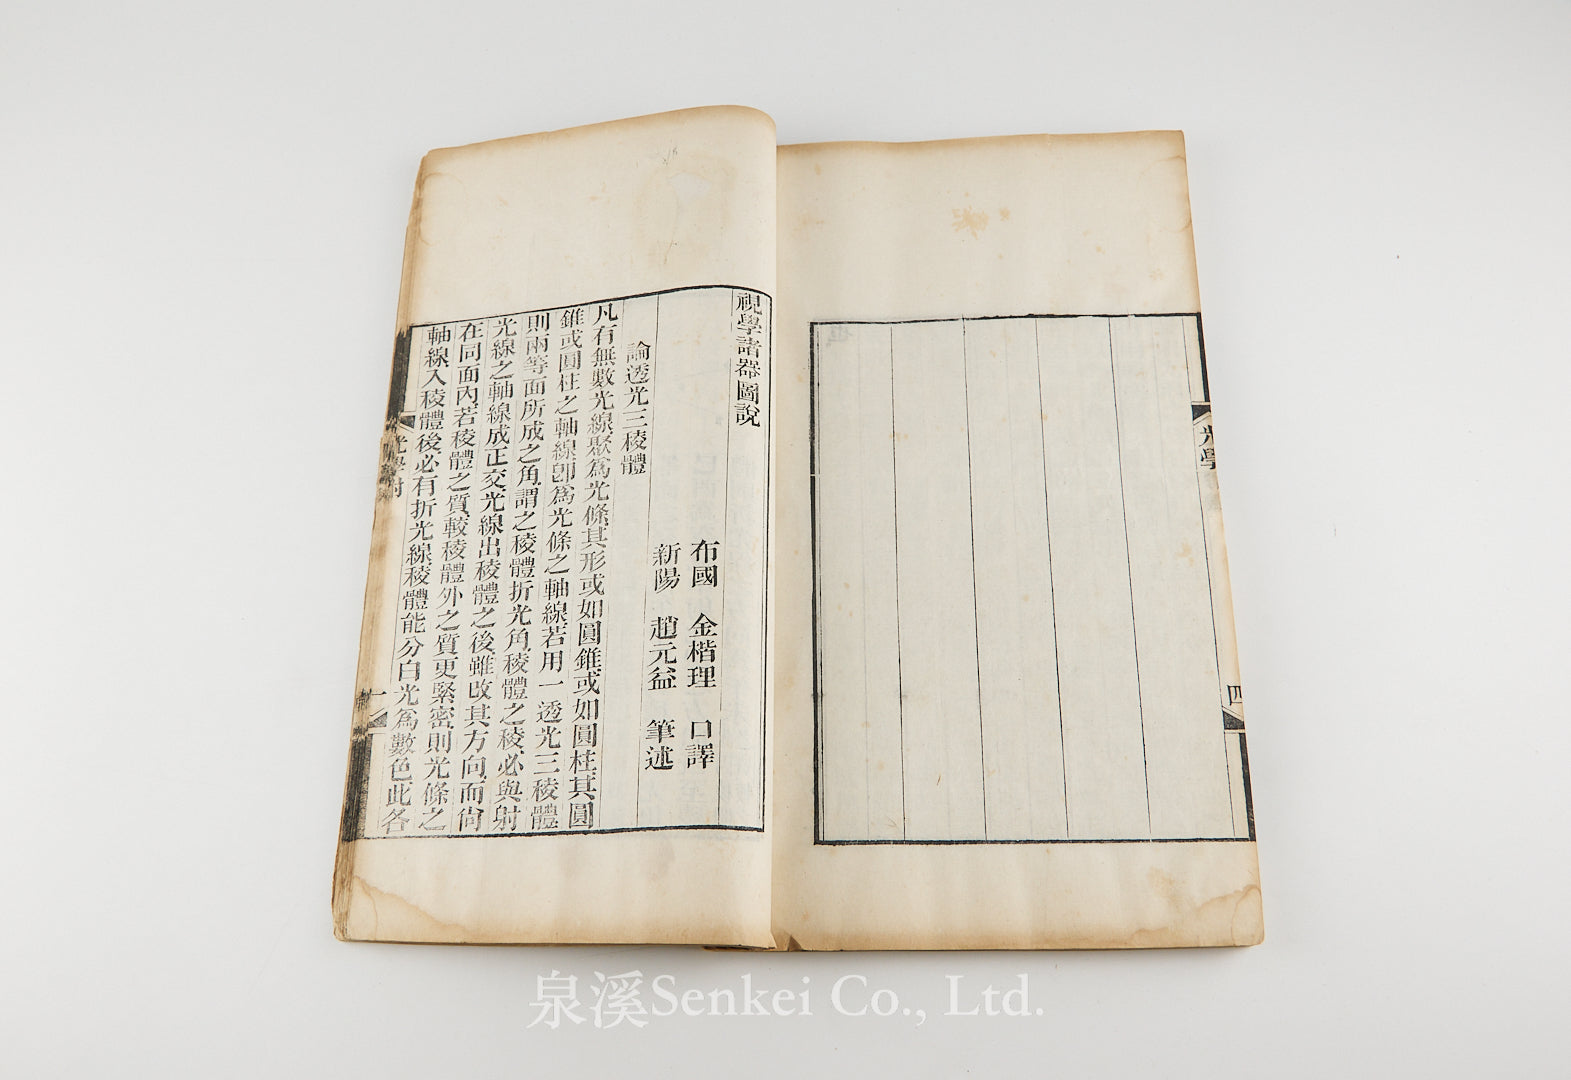 光學
四
視學諸器圖說
布國　金楷理　口譯
新陽　趙元益　筆述
論透光三稜體
凡有無數光線聚為光條其形或如圓錐或如圓柱其圓
錐或圓柱之軸線卽為光條之軸線若用一透光三稜體
則兩等面所成之角謂之稜體折光角稜體之稜必與射
光線之軸線成正交光線出稜體之後雖改其方向而尙
在同面內若稜體之質較稜體外之質更緊密則光條之
軸線入稜體後必有折光線稜體能分白光為數色此各
光學附
一
泉溪Senkei Co., Ltd.